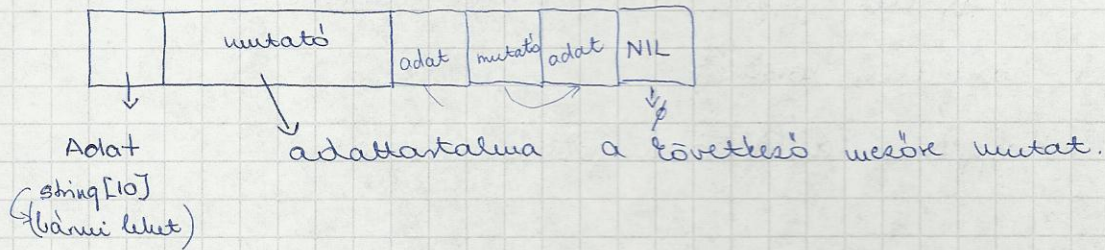 mutató adat mutató adat NIL
Adat adattartalma a következő mezőre mutat.
string[10]
(bármi lehet)